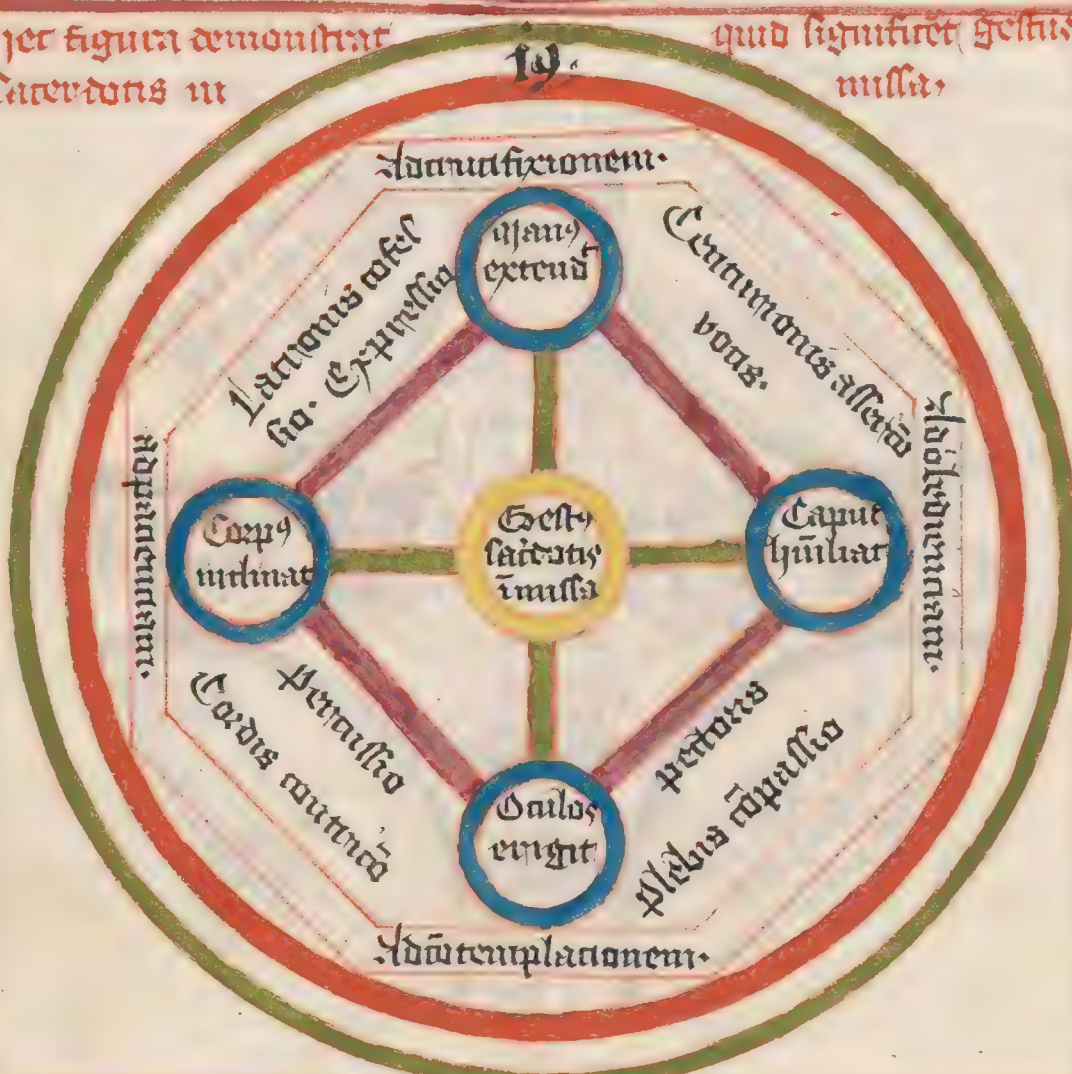 hec figura demonstrat
quid significet gestus
sacerdotis in
missa.
19.
Ad crucifixionem.
Latronis cōfes
sio. Expressio
Man⁹
extend̄t
Centurionis assertō
vocis.
Ad pacientiam.
Corp⁹
inclinat
Gest⁹
sac̄dotis
ī missa
Caput
hūiliat
Ad obedienciam.
Percussio
Cordis contricō
Oculos
erigit
pectoris
Plebis cōpassio
Ad cōtemplacionem.